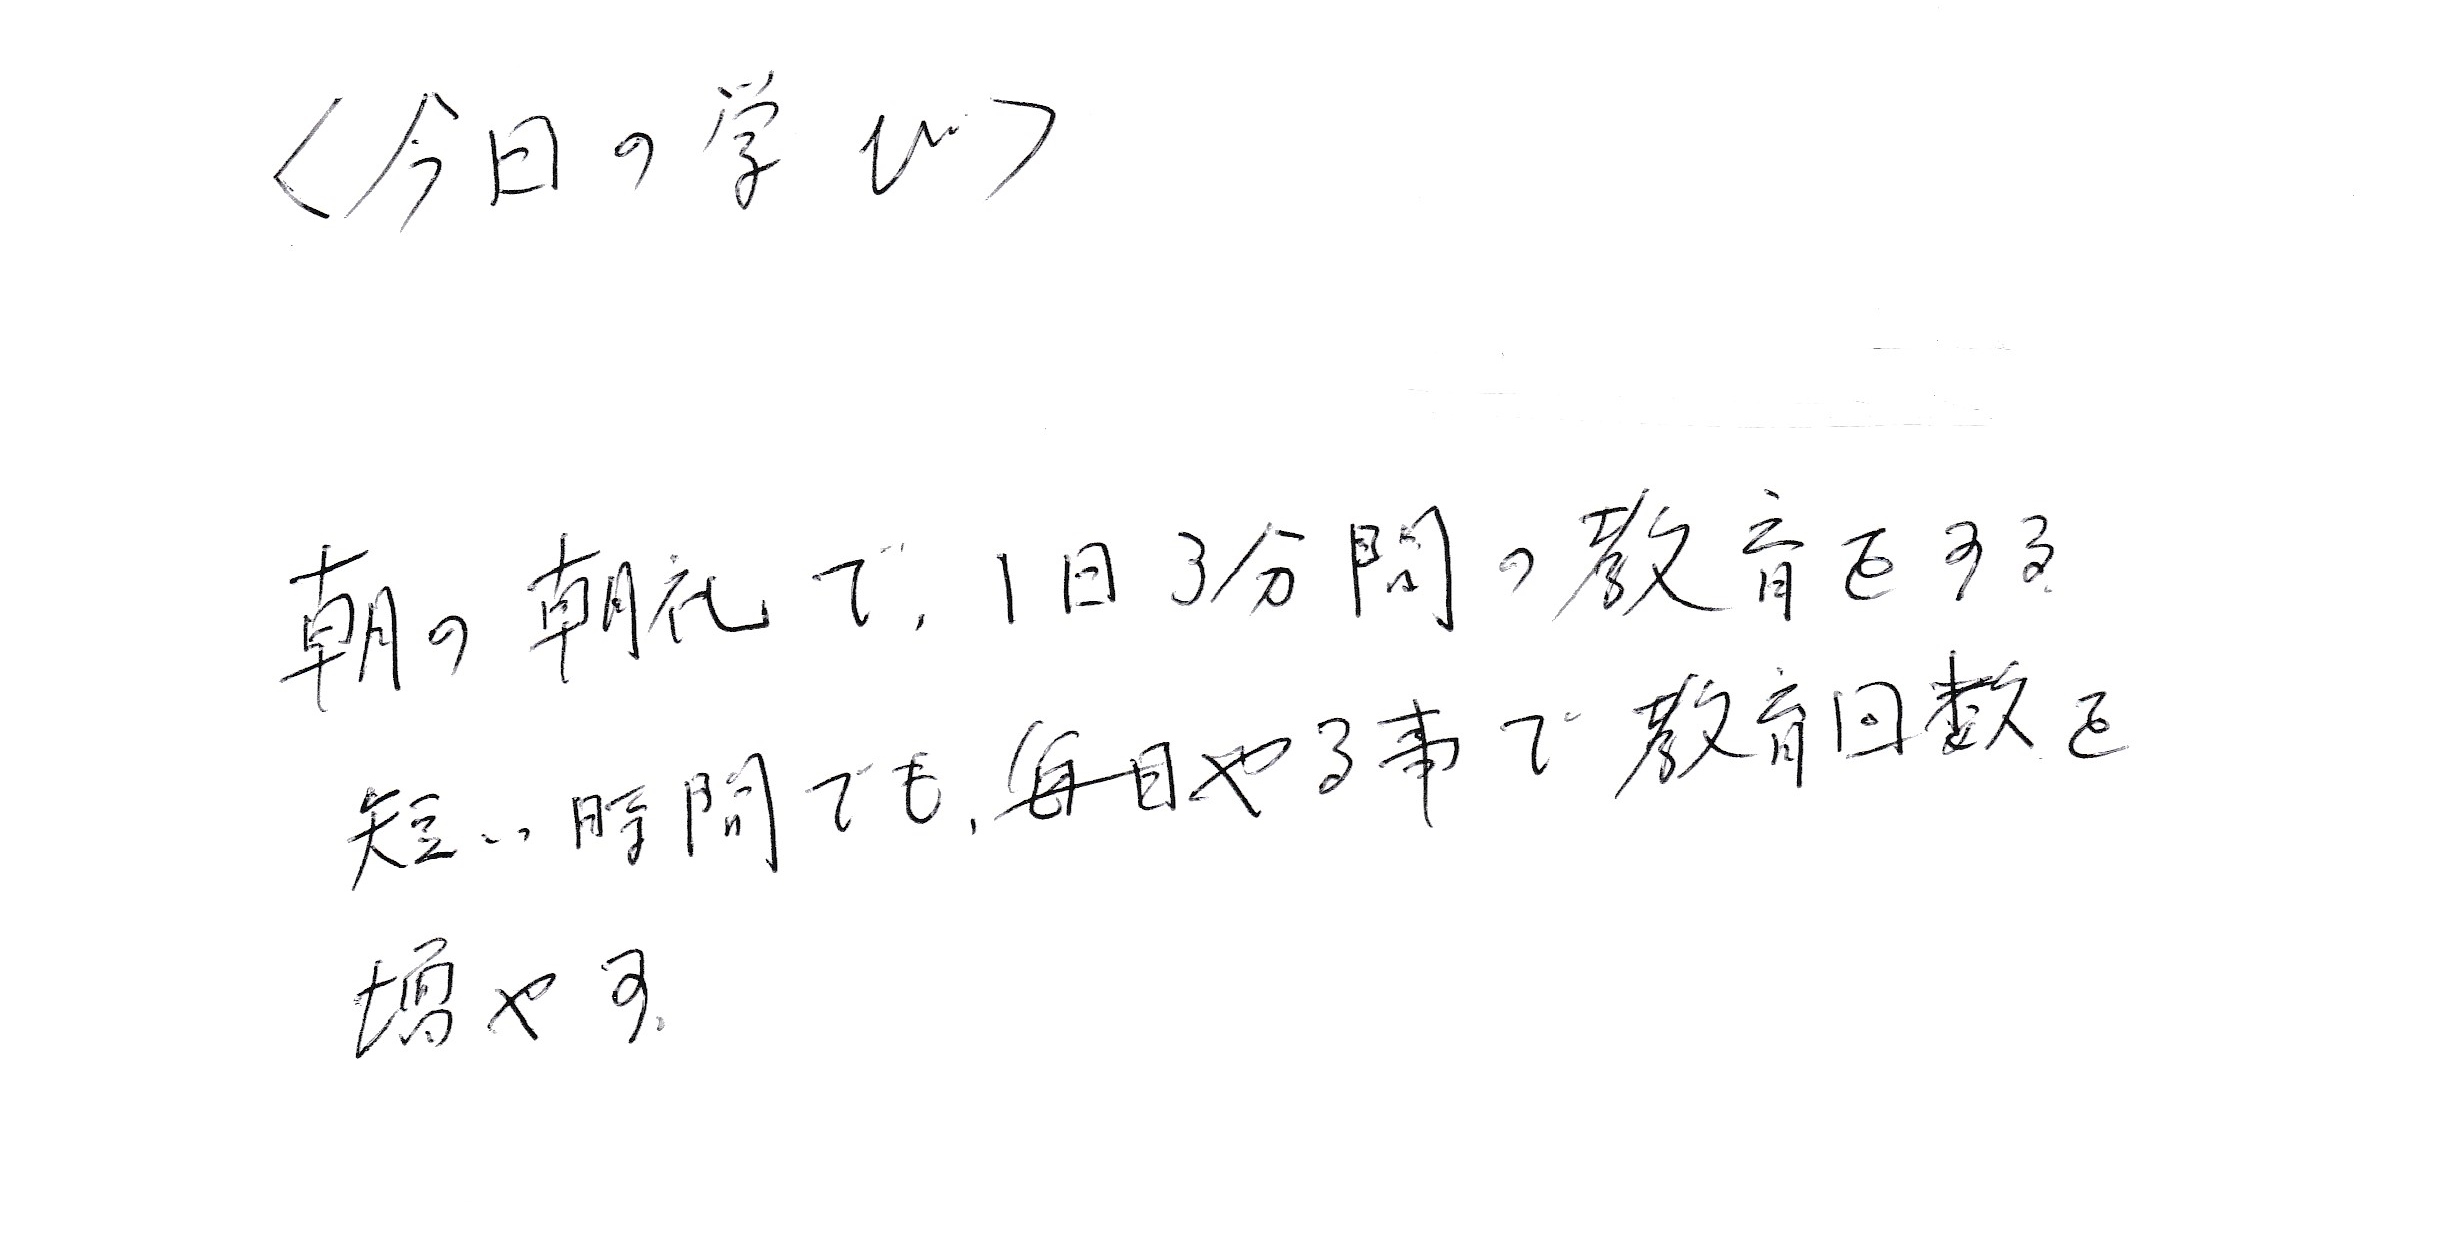 〈今日の学び〉
朝の朝礼で、1日3分間の教育をする
短い時間でも、毎日やる事で教育回数を
増やす。